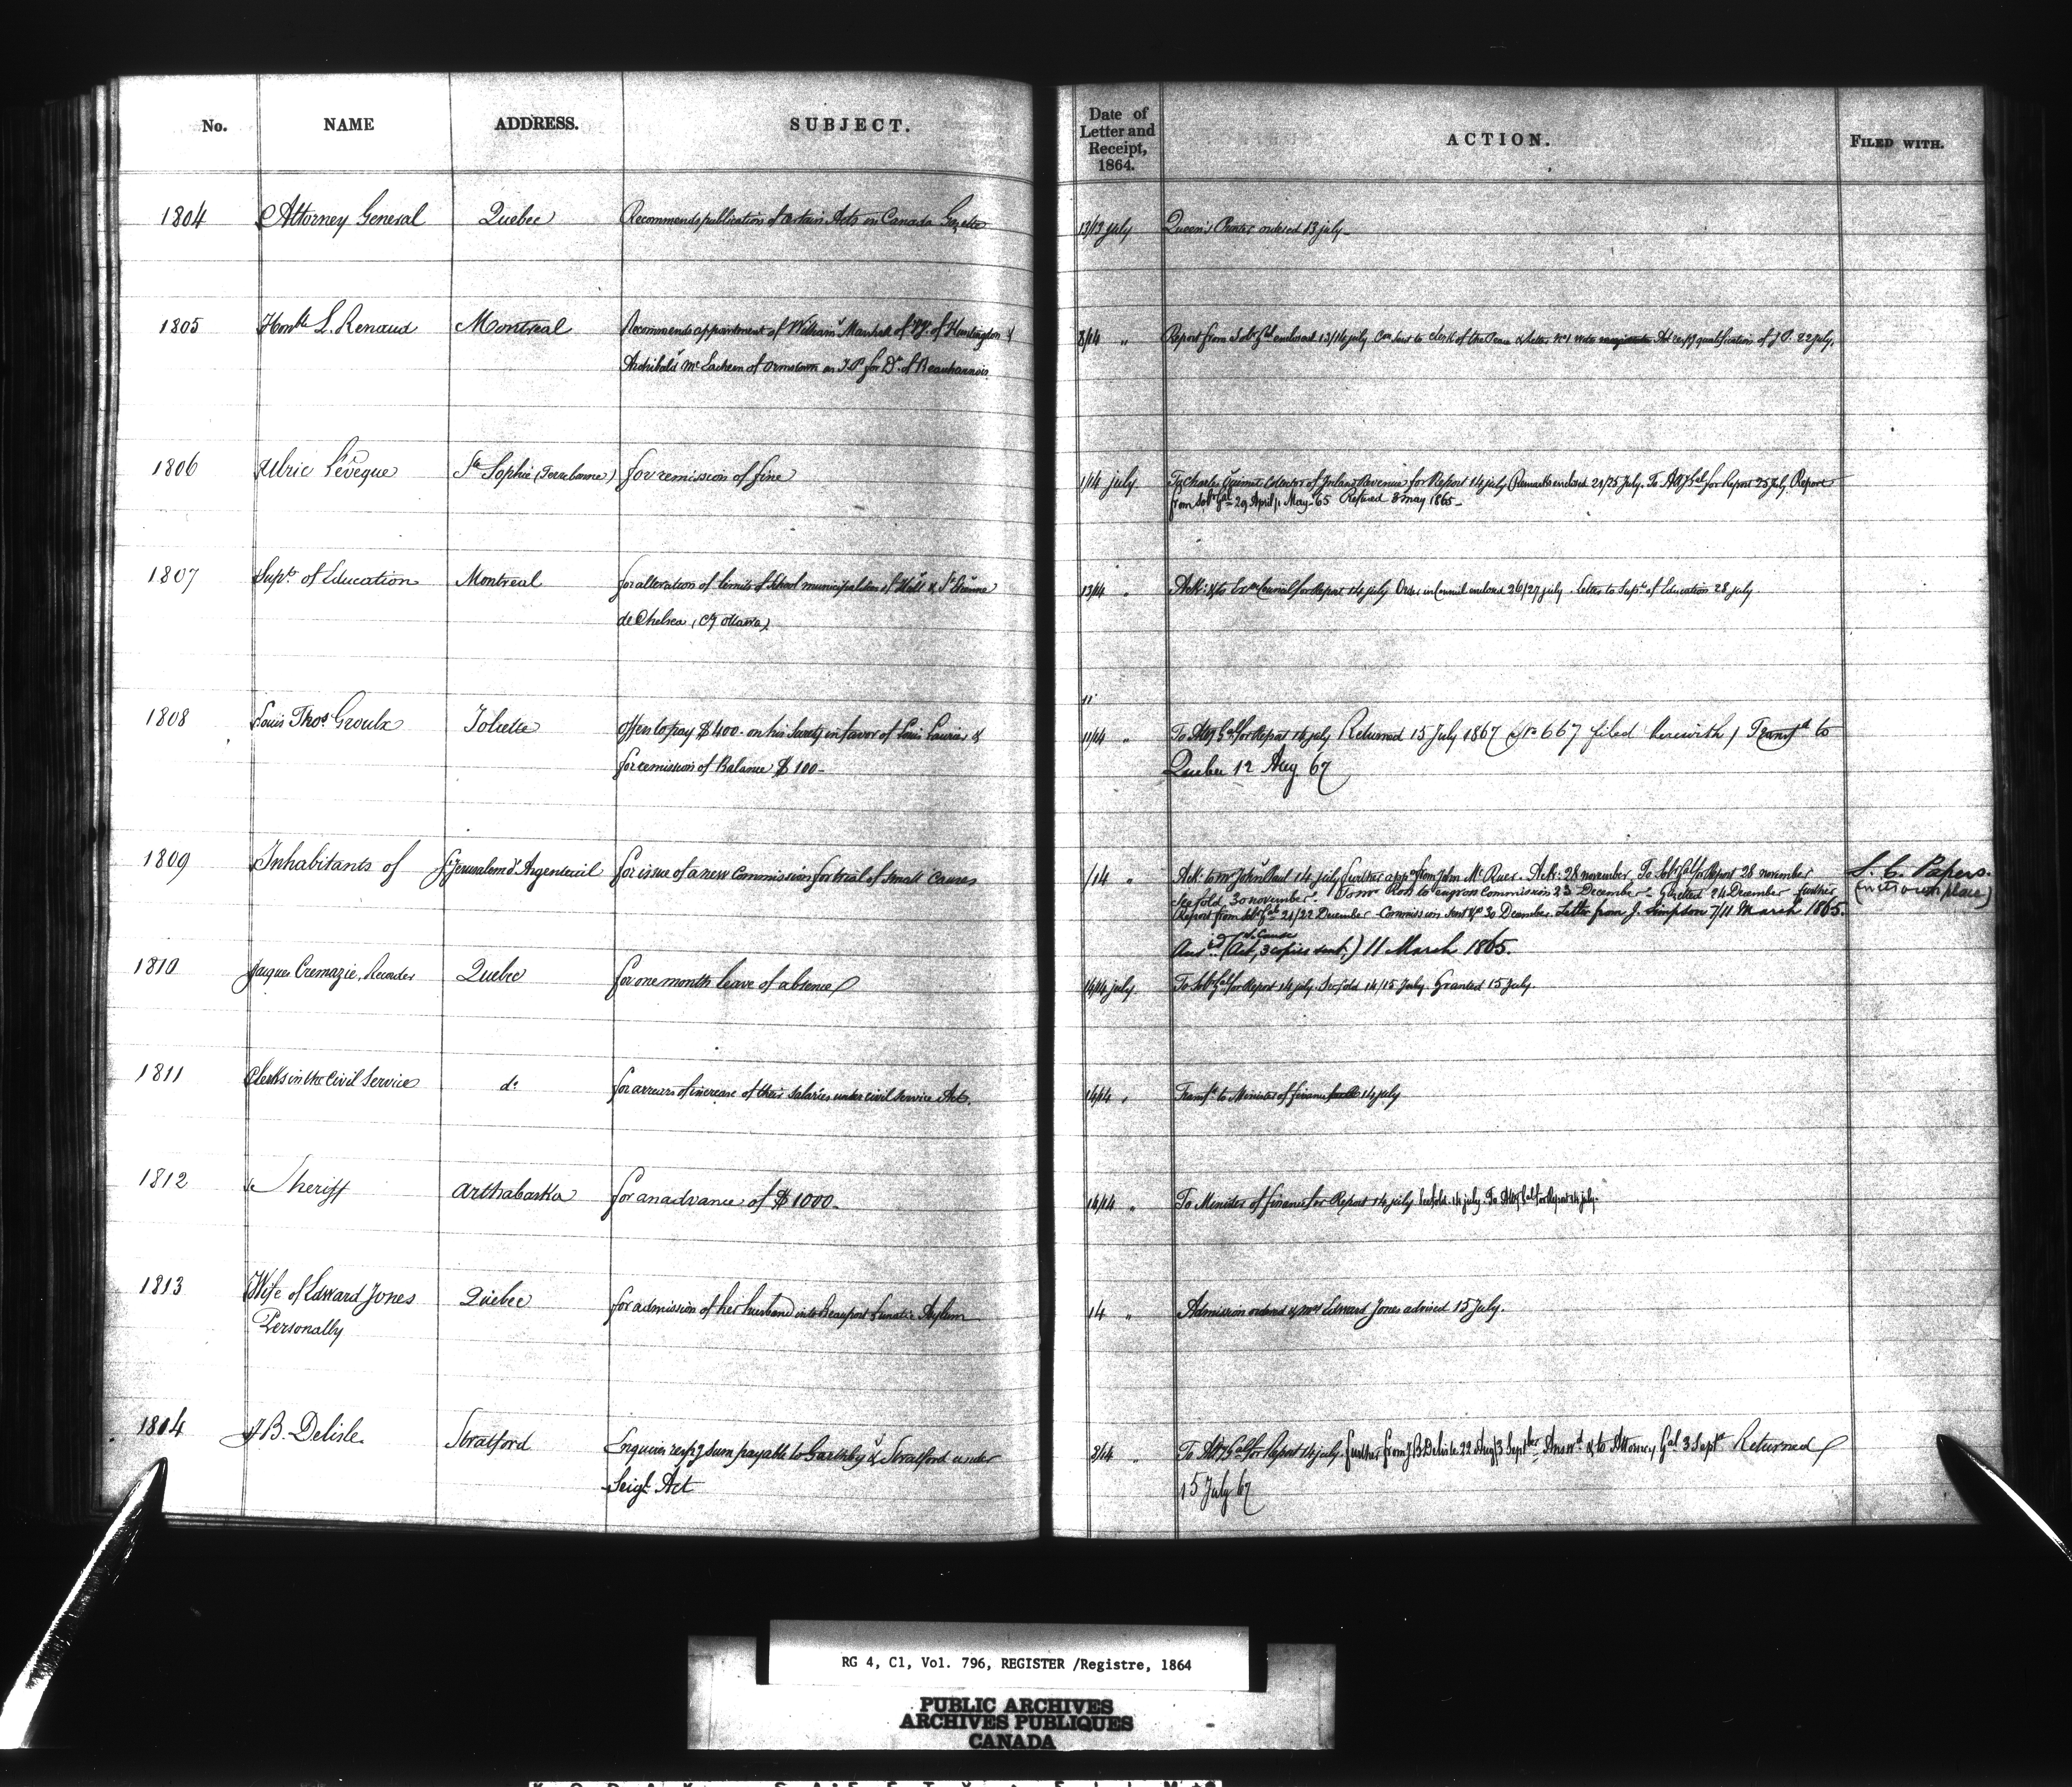 No. NAME ADDRESS. SUBJECT. Date of Letter and Receipt, 1864. ACTION. FILED WITH.
1804 Attorney General Quebec Recommends publication of certain Acts in Canada Gazette 13/13 july Queen's Printer ordered 13 july
1805 Honble L. Renaud Montreal Recommends appointment of William Marshall of of Huntingdon &
Archibald Mc of Ormstown as J.P. for Dt. of Beauharnois
8/14 " Report from Solr Gal enclosed 13/14 july Com sent to Clerk of the Peace & letter qualification of J.P. 22 july.
1806 Ulric Lévêque Ste Sophie (Terrebonne) for remission of fine 1/14 july To Charles Quimet Collector of Inland Revenue for Report 14 july Remarks enclosed 21/25 July. To Atty Gal for Report 25 July. Report
from Solr Gal 29 April/1 May 65 Refused 8 may 1865
1807 Supt of Education Montreal for alteration of limits of School municipalities of Hull & St Etienne
de Chelsea, (Cy Ottawa)
13/14 " Ack: & to Exve Council for Report 14 july Order in Council enclosed 26/27 july. Letter to Supt of Education 28 july
1808 Louis Thos. Groulx Joliette offers to pay $400. on his surety in favor of Louis &
for remission of Balance $100-
11
11/14 " To Atty Gal for Report 14 july Returned 15 July 1867 667 filed herewith / Transfd to
Quebec 12 Aug 67
1809 Inhabitants of St Jerusalem d'Argenteuil for issue of a new Commission for trial of small Causes
/14 " Ack: to mr John Paul 14 july further appn from John Mc Ruer. Ack: 28 november To Solr Gal for Report 28 november
See fold 30 november. To mr Ross to engross Commission 23 December. Gazetted 24 December further
Report from Solr Gal 21/22 December Commission sent &c 30 December. Letter from J. Simpson 7/11 March 1865.
Ansd. (S. Cause Act, 3 copies sent,) 11 March 1865.
S. C. Papers.
(into own place)
1810 Jacques Cremazie, Recorder Quebec for one month leave of absence 14/14 july To Solr Gal for Report 14 july See fold 14/15 July Granted 15 july
1811 Clerks in the Civil Service do for arrears of increase of their salaries under civil service Act. 14/14 " Transfd to Minister of finance 14 july
1812 Sheriff Arthabaska for an advance of $1000- 14/14 " To Minister of finance for Report 14 july See fold 14 july. To Atty Gal for Report 14 july.
1813 Wife of Edward Jones Quebec for admission of her husband into Beauport Lunatic Asylum 14 " Admission ordered & mrs Edward Jones advised 15 July.
Personally
1814 J B. Delisle Stratford Enquires respg sum payable to Garthby & Stratford under
Seigl. Act
8/14 " To Atty Gal for Report 14 july further from J B Delisle 22 Aug/3 Septber Answd & to Attorney Gal 3 Sept Returned
15 July 67
RG 4, C1, Vol. 796, REGISTER /Registre, 1864
PUBLIC ARCHIVES
ARCHIVES PUBLIQUES
CANADA